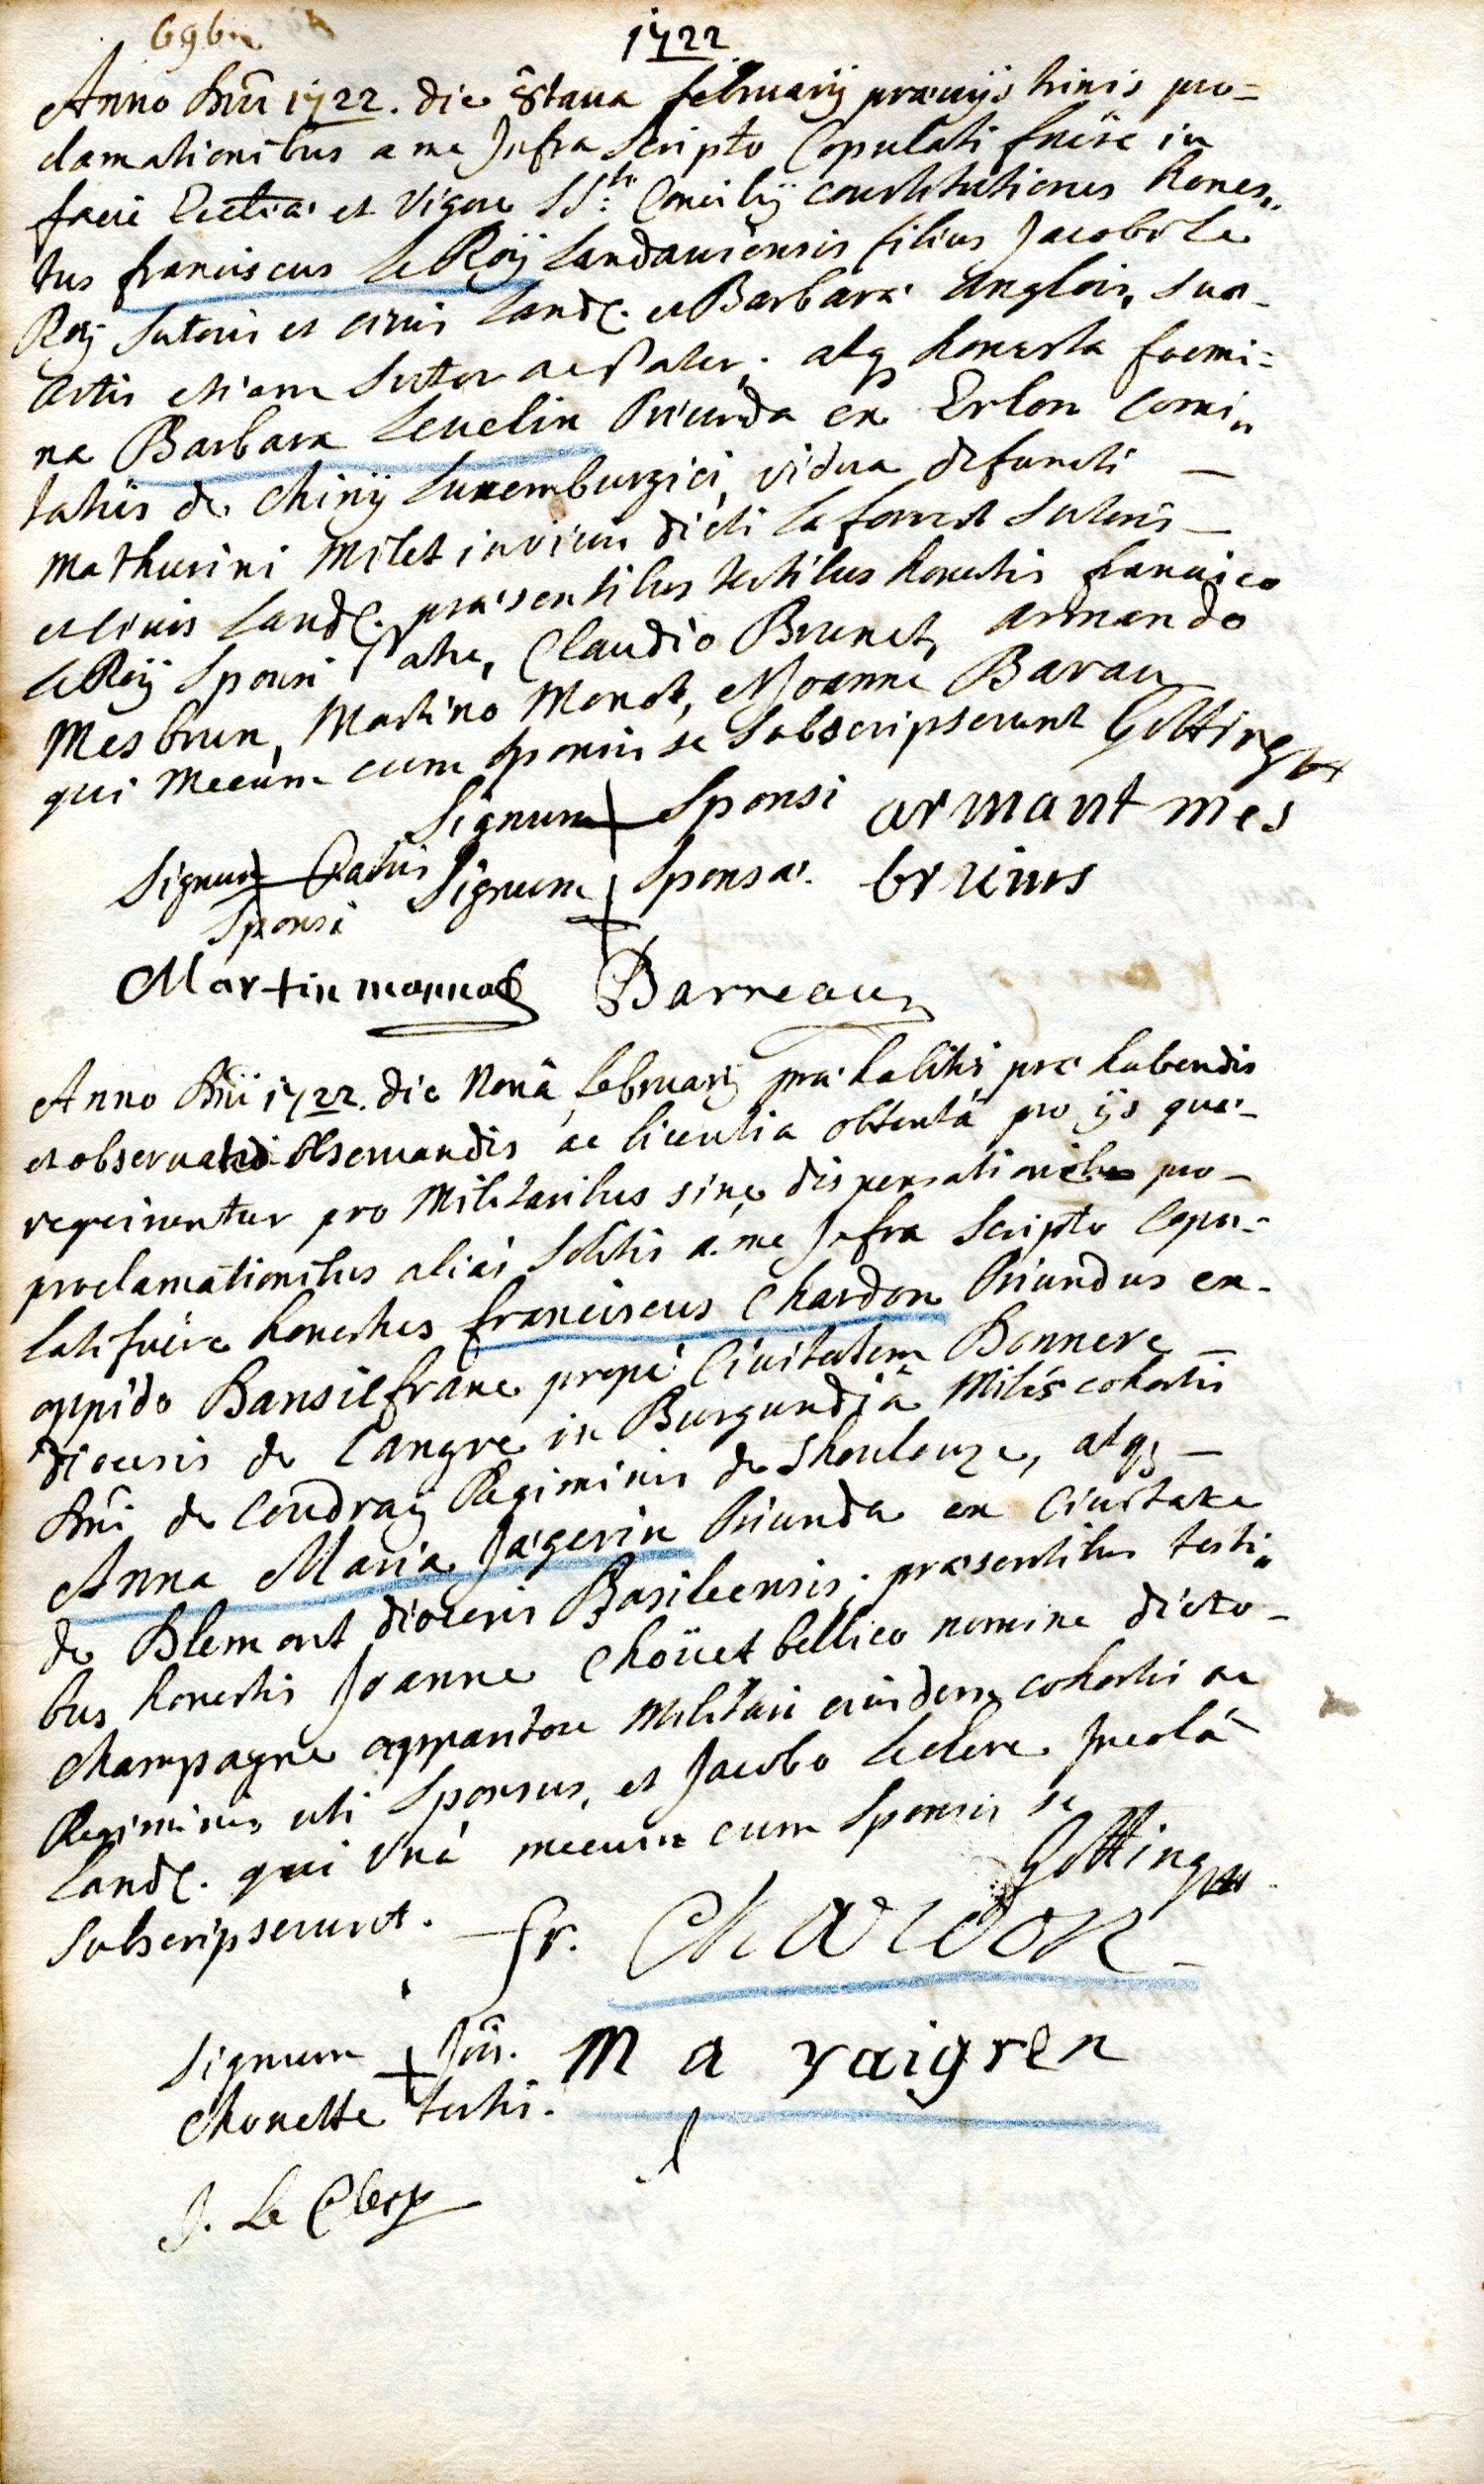 69bis
1722
Anno Dnĩ 1722. die 8tava februarij praevijs trinis pro=
clamationibus a me Infra Scripto Copulati fuêre in
facie Eccliae et vigore SSti: Concilij constitutiones hones„
tus franciscus Le Roÿ Landauiensis filius Jacobi Le
Roÿ Sutoris et civis Landc. et Barbara Anglois, suae
artis etiam Sutor ac Pater; atq honesta foemi=
na Barbara Levelin Oriunda ex Erlon Comi„
tatûs de Chinÿ Luxemburgici, vidua defuncti
Mathurini Milet in vicem dicti La forrest Sutoris
et civis Landc. praesentibus testibus honestis francisco
Le Roÿ Sponsi Patre, Claudio Brunet, Armando
Mesbrun, Martino Monot, et Joanne Barau
qui mecum cum sponsis se subscripserunt Götting
Signum Sponsi armant mes
Signum Patris Signum Sponsae. bruns
Sponsi
Martin monnot Barreau
Anno Dnĩ 1722. die Nonâ februarij prae habitis prae habendis
et observatis observandis ac licentia obtentâ pro ijs quae
requiruntur pro Militaribus sine dispensatione pro
proclamationibus aliàs Solitis a me Infra Scripto Copu-
lati fuêre honestus franciscus Chardon Oriundus ex
oppido Bansilfrane propè Civitatem Bonnere
diocesis de Langre in Burgundiâ Milés cohortis
Dnĩ de Coudraÿ Regiminis de Thoulouze, atq
Anna Maria Jaegerin Oriunda ex Civitate
de Blemont diocesis Basileensis; praesentibus testi„
bus honestis Joanne Choüet bellico nomine dicto
Champagne apparitore Militari eiusdem cohortis ac
Regiminis uti Sponsus, et Jacobo Leclere Incolâ
Landc. qui Unà mecum cum Sponsis se
Subscripserunt. Götting
fr. Chardon
Signum Jois. M a yaigren
Chouette testis.
J. Le Clerp